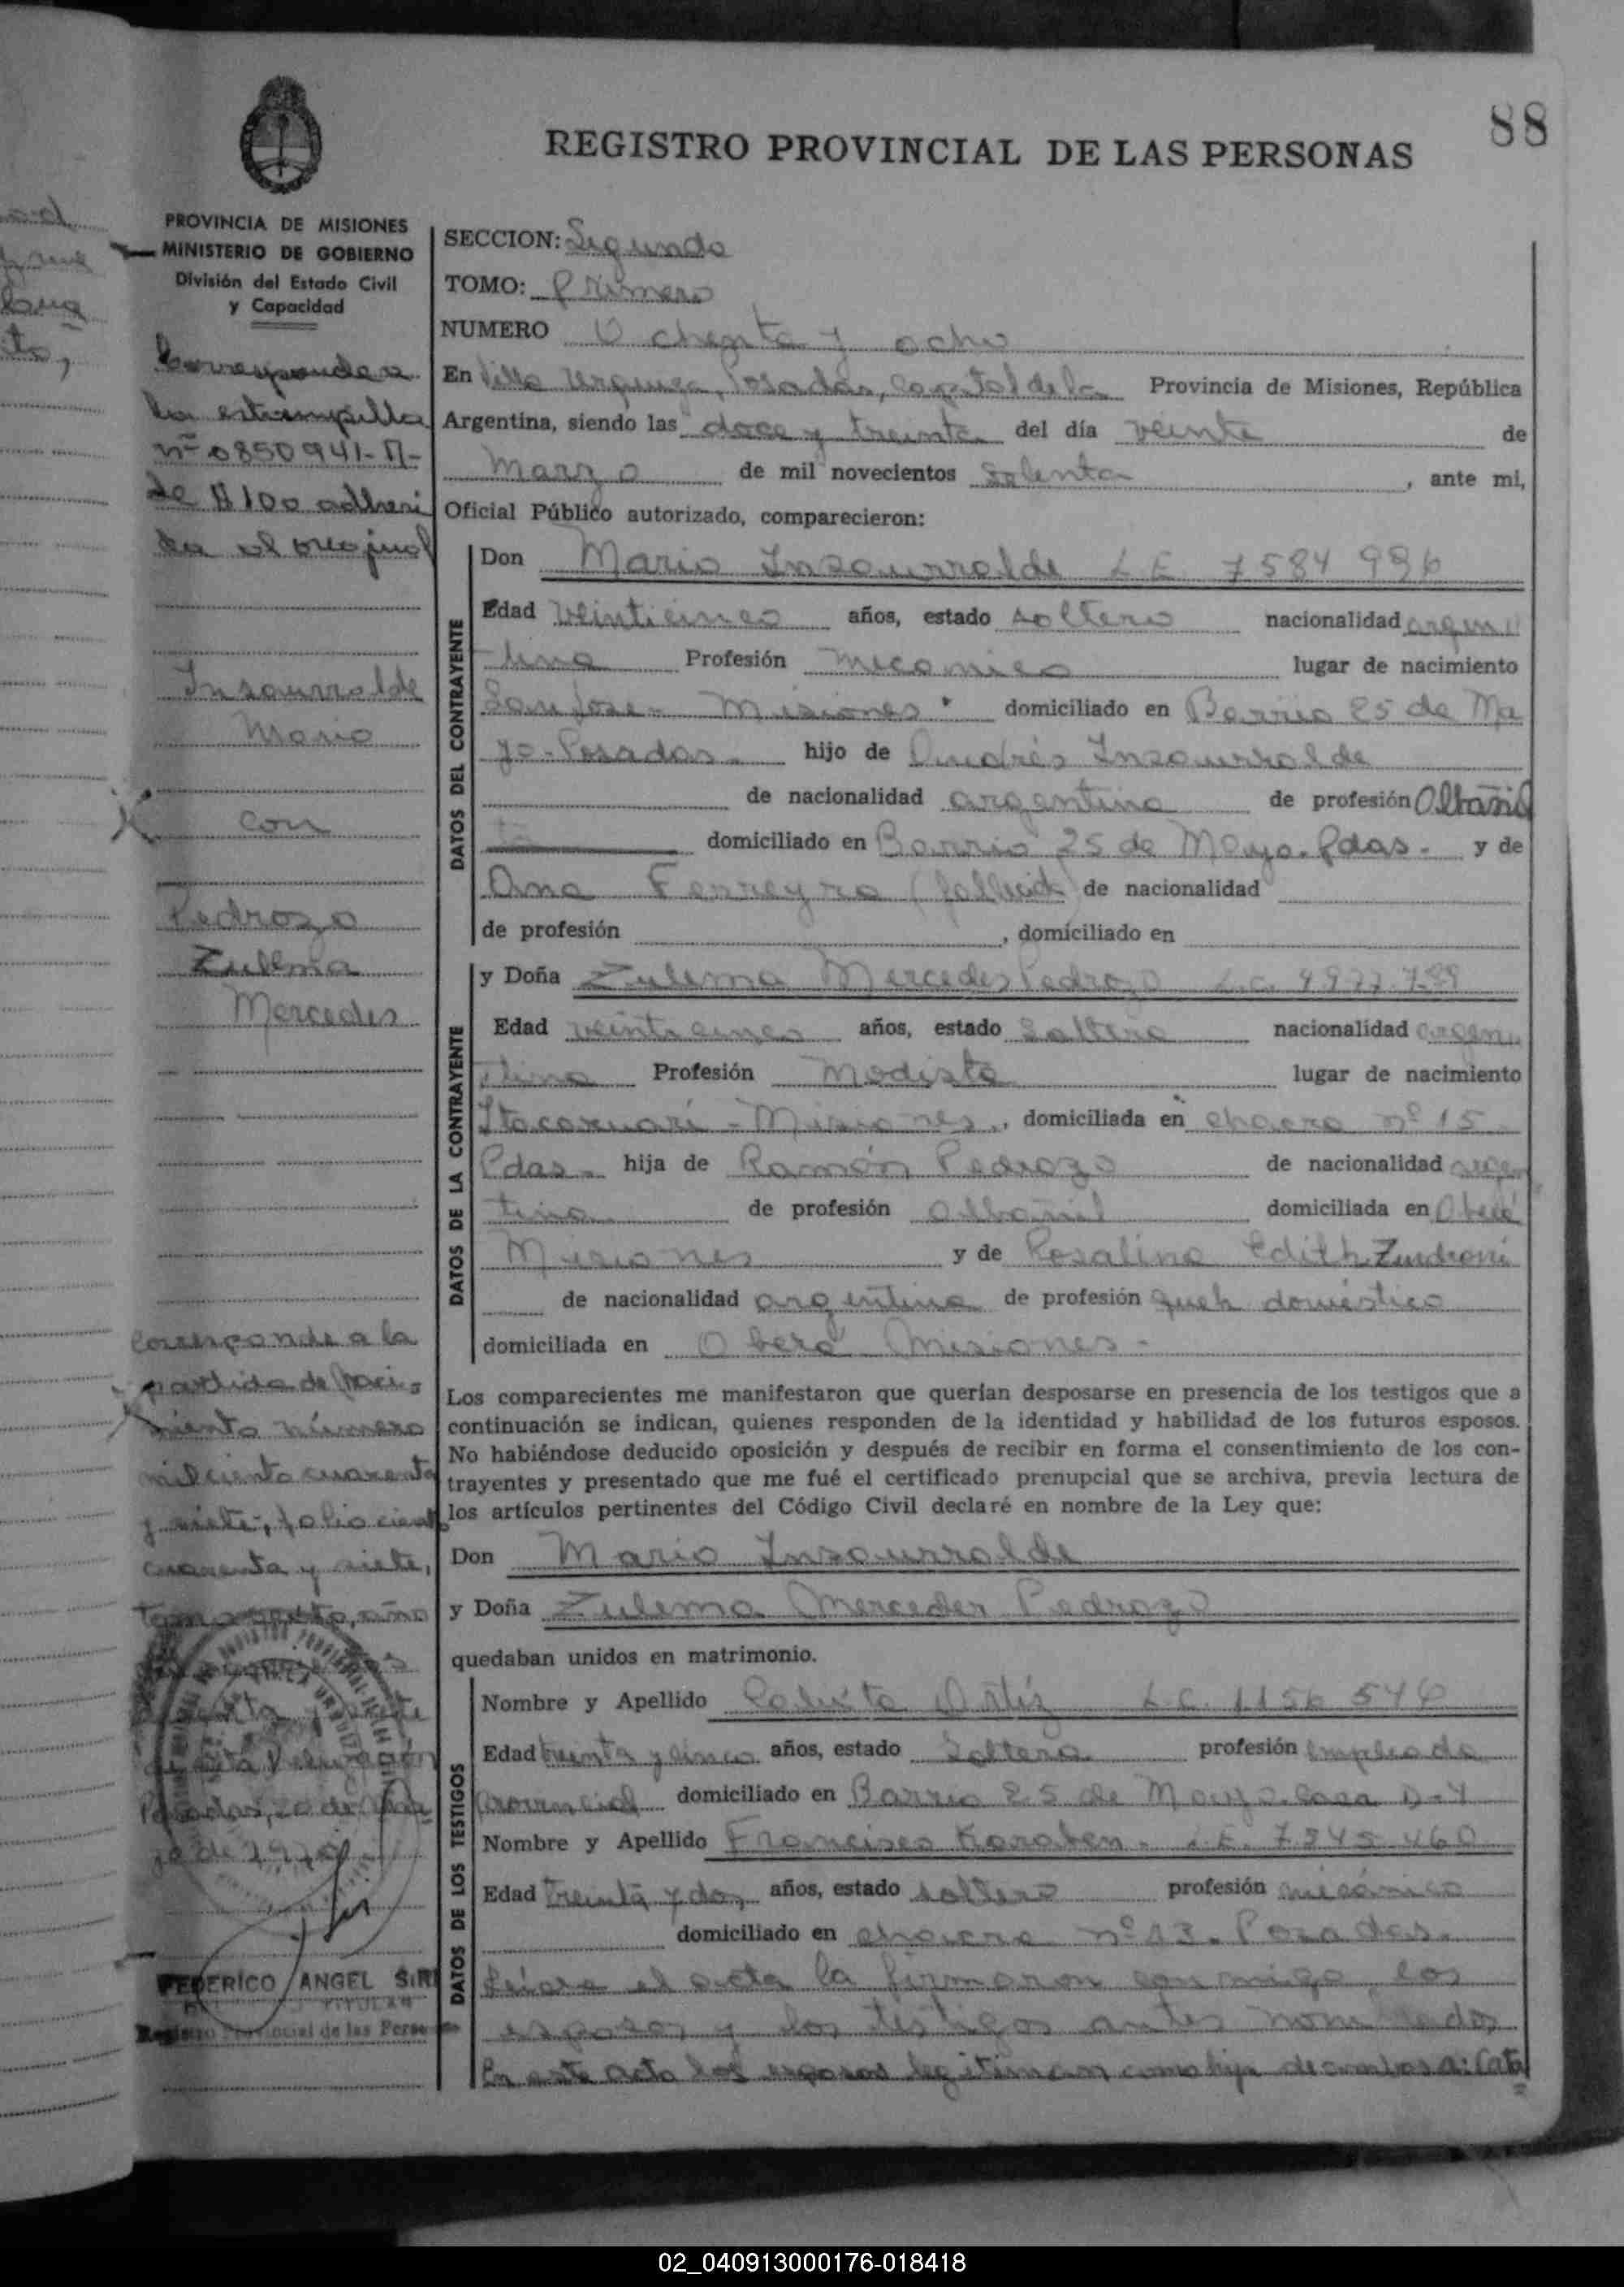 88
REGISTRO PROVINCIAL DE LAS PERSONAS
PROVINCIA DE MISIONES
MINISTERIO DE GOBIERNO
División del Estado Civil
y Capacidad
Corresponde a
la estampilla
nº 0850941-A-
de $ 100 adheri
da al original
Insaurralde
Mario
con
Pedrozo
Zulema
Mercedes
Corresponde a la
partida de Naci-
miento número
mil ciento cuarenta
y siete, folio ciento
cuarenta y siete,
tomo sexto, año
Posadas, 20 de
de 1970
FEDERICO ANGEL
TITULAR
Registro Provincial de las Perso
SECCION: Segunda
TOMO: Primero
NUMERO Ochenta y ocho
En Villa Urquiza, Posadas, Capital de la Provincia de Misiones, República
Argentina, siendo las doce y treinta del día veinte de
Marzo de mil novecientos setenta, ante mi,
Oficial Público autorizado, comparecieron:
DATOS DEL CONTRAYENTE
Don Mario Insaurralde L.E. 7584 996
Edad veinticinco años, estado soltero nacionalidad argen
tina Profesión mecanico lugar de nacimiento
San Jose - Misiones domiciliado en Barrio 25 de Ma
yo - Posadas. hijo de Andrés Insaurralde
de nacionalidad argentina de profesión Albañil
domiciliado en Barrio 25 de Mayo. Pdas. y de
Ana Ferreyra (fallecida) de nacionalidad
de profesión , domiciliado en
DATOS DE LA CONTRAYENTE
y Doña Zulema Mercedes Pedrozo L.C. 4977.
Edad veinticinco años, estado soltera nacionalidad argen
tina Profesión Modista lugar de nacimiento
Itacaruaré - Misiones., domiciliada en chacra nº 15
Pdas. hija de Ramón Pedrozo de nacionalidad argen
tina de profesión albañil domiciliada en Oberá
Misiones y de Rosalina Edith
de nacionalidad argentina de profesión queh domésticos
domiciliada en Oberá Misiones -
Los comparecientes me manifestaron que querían desposarse en presencia de los testigos que a
continuación se indican, quienes responden de la identidad y habilidad de los futuros esposos.
No habiéndose deducido oposición y después de recibir en forma el consentimiento de los con-
trayentes y presentado que me fué el certificado prenupcial que se archiva, previa lectura de
los artículos pertinentes del Código Civil declaré en nombre de la Ley que:
Don Mario Insaurralde
y Doña Zulema Mercedes Pedrozo
quedaban unidos en matrimonio.
DATOS DE LOS TESTIGOS
Nombre y Apellido Ortíz L.C. 1156 546
Edad treinta y cinco años, estado Soltera profesión empleada
provincial domiciliado en Barrio 25 de Mayo. Casa D-4
Nombre y Apellido Francisco Karaben. L.E. 7545 460
Edad treinta y dos, años, estado soltero profesión mecánico
domiciliado en chacra nº 13. Posadas.
Leída el acta la firmaron conmigo los
esposos y los testigos antes nombrados
En este acto los esposos legitiman como hija de ambos a: Cata
02_040913000176-018418